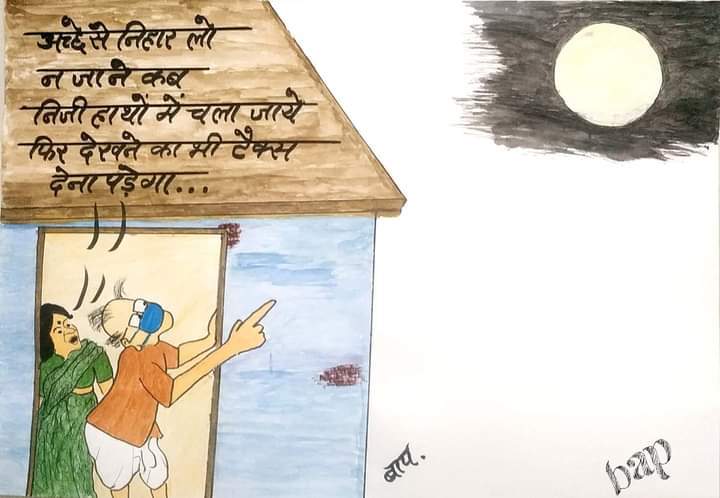 अच्छे से निहार लो
न जाने कब
निजी हाथों में चला जाये
फिर देखने का भी टैक्स
देना पड़ेगा...
बाप.
bap